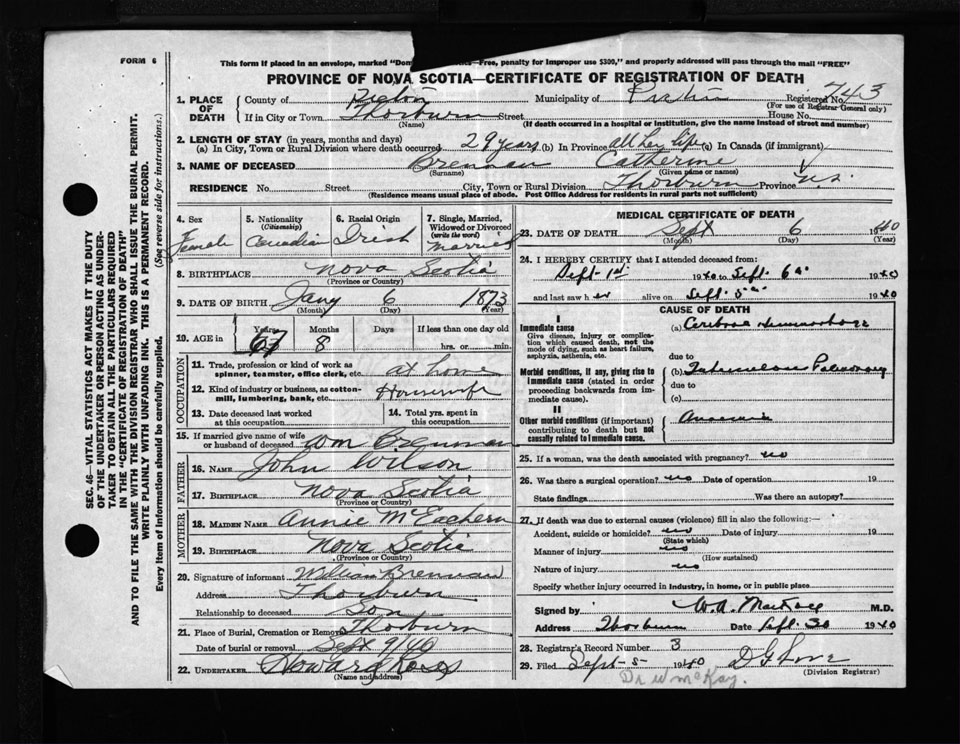 FORM 6
This form if placed in an envelope, marked "Dom Free, penalty for improper use $300," and properly addressed will pass through the mail "FREE"
PROVINCE OF NOVA SCOTIA—CERTIFICATE OF REGISTRATION OF DEATH
SEC. 46—VITAL STATISTICS ACT MAKES IT THE DUTY
OF THE UNDERTAKER OR PERSON ACTING AS UNDER-
TAKER TO OBTAIN ALL THE PARTICULARS REQUIRED
IN THE "CERTIFICATE OF REGISTRATION OF DEATH"
AND TO FILE THE SAME WITH THE DIVISION REGISTRAR WHO SHALL ISSUE THE BURIAL PERMIT.
WRITE PLAINLY WITH UNFADING INK. THIS IS A PERMANENT RECORD.
Every item of Information should be carefully supplied. (See reverse side for instructions.)
1. PLACE OF DEATH County of Pictou Municipality of Pictou Registered No. 743
(For use of Registrar General only)
If in City or Town Thorburn Street House No.
(Name) (If death occurred in a hospital or institution, give the name instead of street and number)
2. LENGTH OF STAY (in years, months and days)
(a) In City, Town or Rural Division where death occurred 29 years (b) In Province all her life (c) In Canada (if immigrant)
3. NAME OF DECEASED Brennan Catherine
(Surname) (Given name or names)
RESIDENCE No. Street City, Town or Rural Division Thorburn Province N.S.
(Residence means usual place of abode. Post Office Address for residents in rural parts not sufficient)
4. Sex Female
5. Nationality (Citizenship) Canadian
6. Racial Origin Irish
7. Single, Married, Widowed or Divorced (write the word) Married
8. BIRTHPLACE Nova Scotia
(Province or Country)
9. DATE OF BIRTH Jany 6 1873
(Month) (Day) (Year)
10. AGE in Years 67 Months 8 Days If less than one day old hrs. or min.
OCCUPATION
11. Trade, profession or kind of work as spinner, teamster, office clerk, etc. at home
12. Kind of industry or business, as cotton-mill, lumbering, bank, etc. Housewife
13. Date deceased last worked at this occupation
14. Total yrs. spent in this occupation
15. If married give name of wife or husband of deceased Wm Brennan
FATHER
16. NAME John Wilson
17. BIRTHPLACE Nova Scotia
(Province or Country)
MOTHER
18. MAIDEN NAME Annie McEachern
19. BIRTHPLACE Nova Scotia
(Province or Country)
20. Signature of informant William Brennan
Address Thorburn
Relationship to deceased Son
21. Place of Burial, Cremation or Removal Thorburn
Date of burial or removal Sept 9/40
22. UNDERTAKER Howard
(Name and address)
MEDICAL CERTIFICATE OF DEATH
23. DATE OF DEATH Sept 6 1940
(Month) (Day) (Year)
24. I HEREBY CERTIFY that I attended deceased from:
Sept 1st 1940 to Sept. 6th 1940
and last saw her alive on Sept. 5th 1940
CAUSE OF DEATH
I
Immediate cause
Give disease, injury or complication which caused death, not the mode of dying, such as heart failure, asphyxia, asthenia, etc.
(a) Cerebral Hemorrhage
due to
Morbid conditions, if any, giving rise to immediate cause (stated in order proceeding backwards from immediate cause).
(b)
due to
(c)
II
Other morbid conditions (if important) contributing to death but not causally related to immediate cause.
25. If a woman, was the death associated with pregnancy? no
26. Was there a surgical operation? no Date of operation 19
State findings Was there an autopsy?
27. If death was due to external causes (violence) fill in also the following:—
Accident, suicide or homicide? no Date of injury 19
(State which)
Manner of injury no
(How sustained)
Nature of injury no
Specify whether injury occurred in industry, in home, or in public place
Signed by M.D.
Address Thorburn Date Sept. 30 1940
28. Registrar's Record Number 3
29. Filed Sept 5 1940
(Division Registrar)
Dr W McKay.